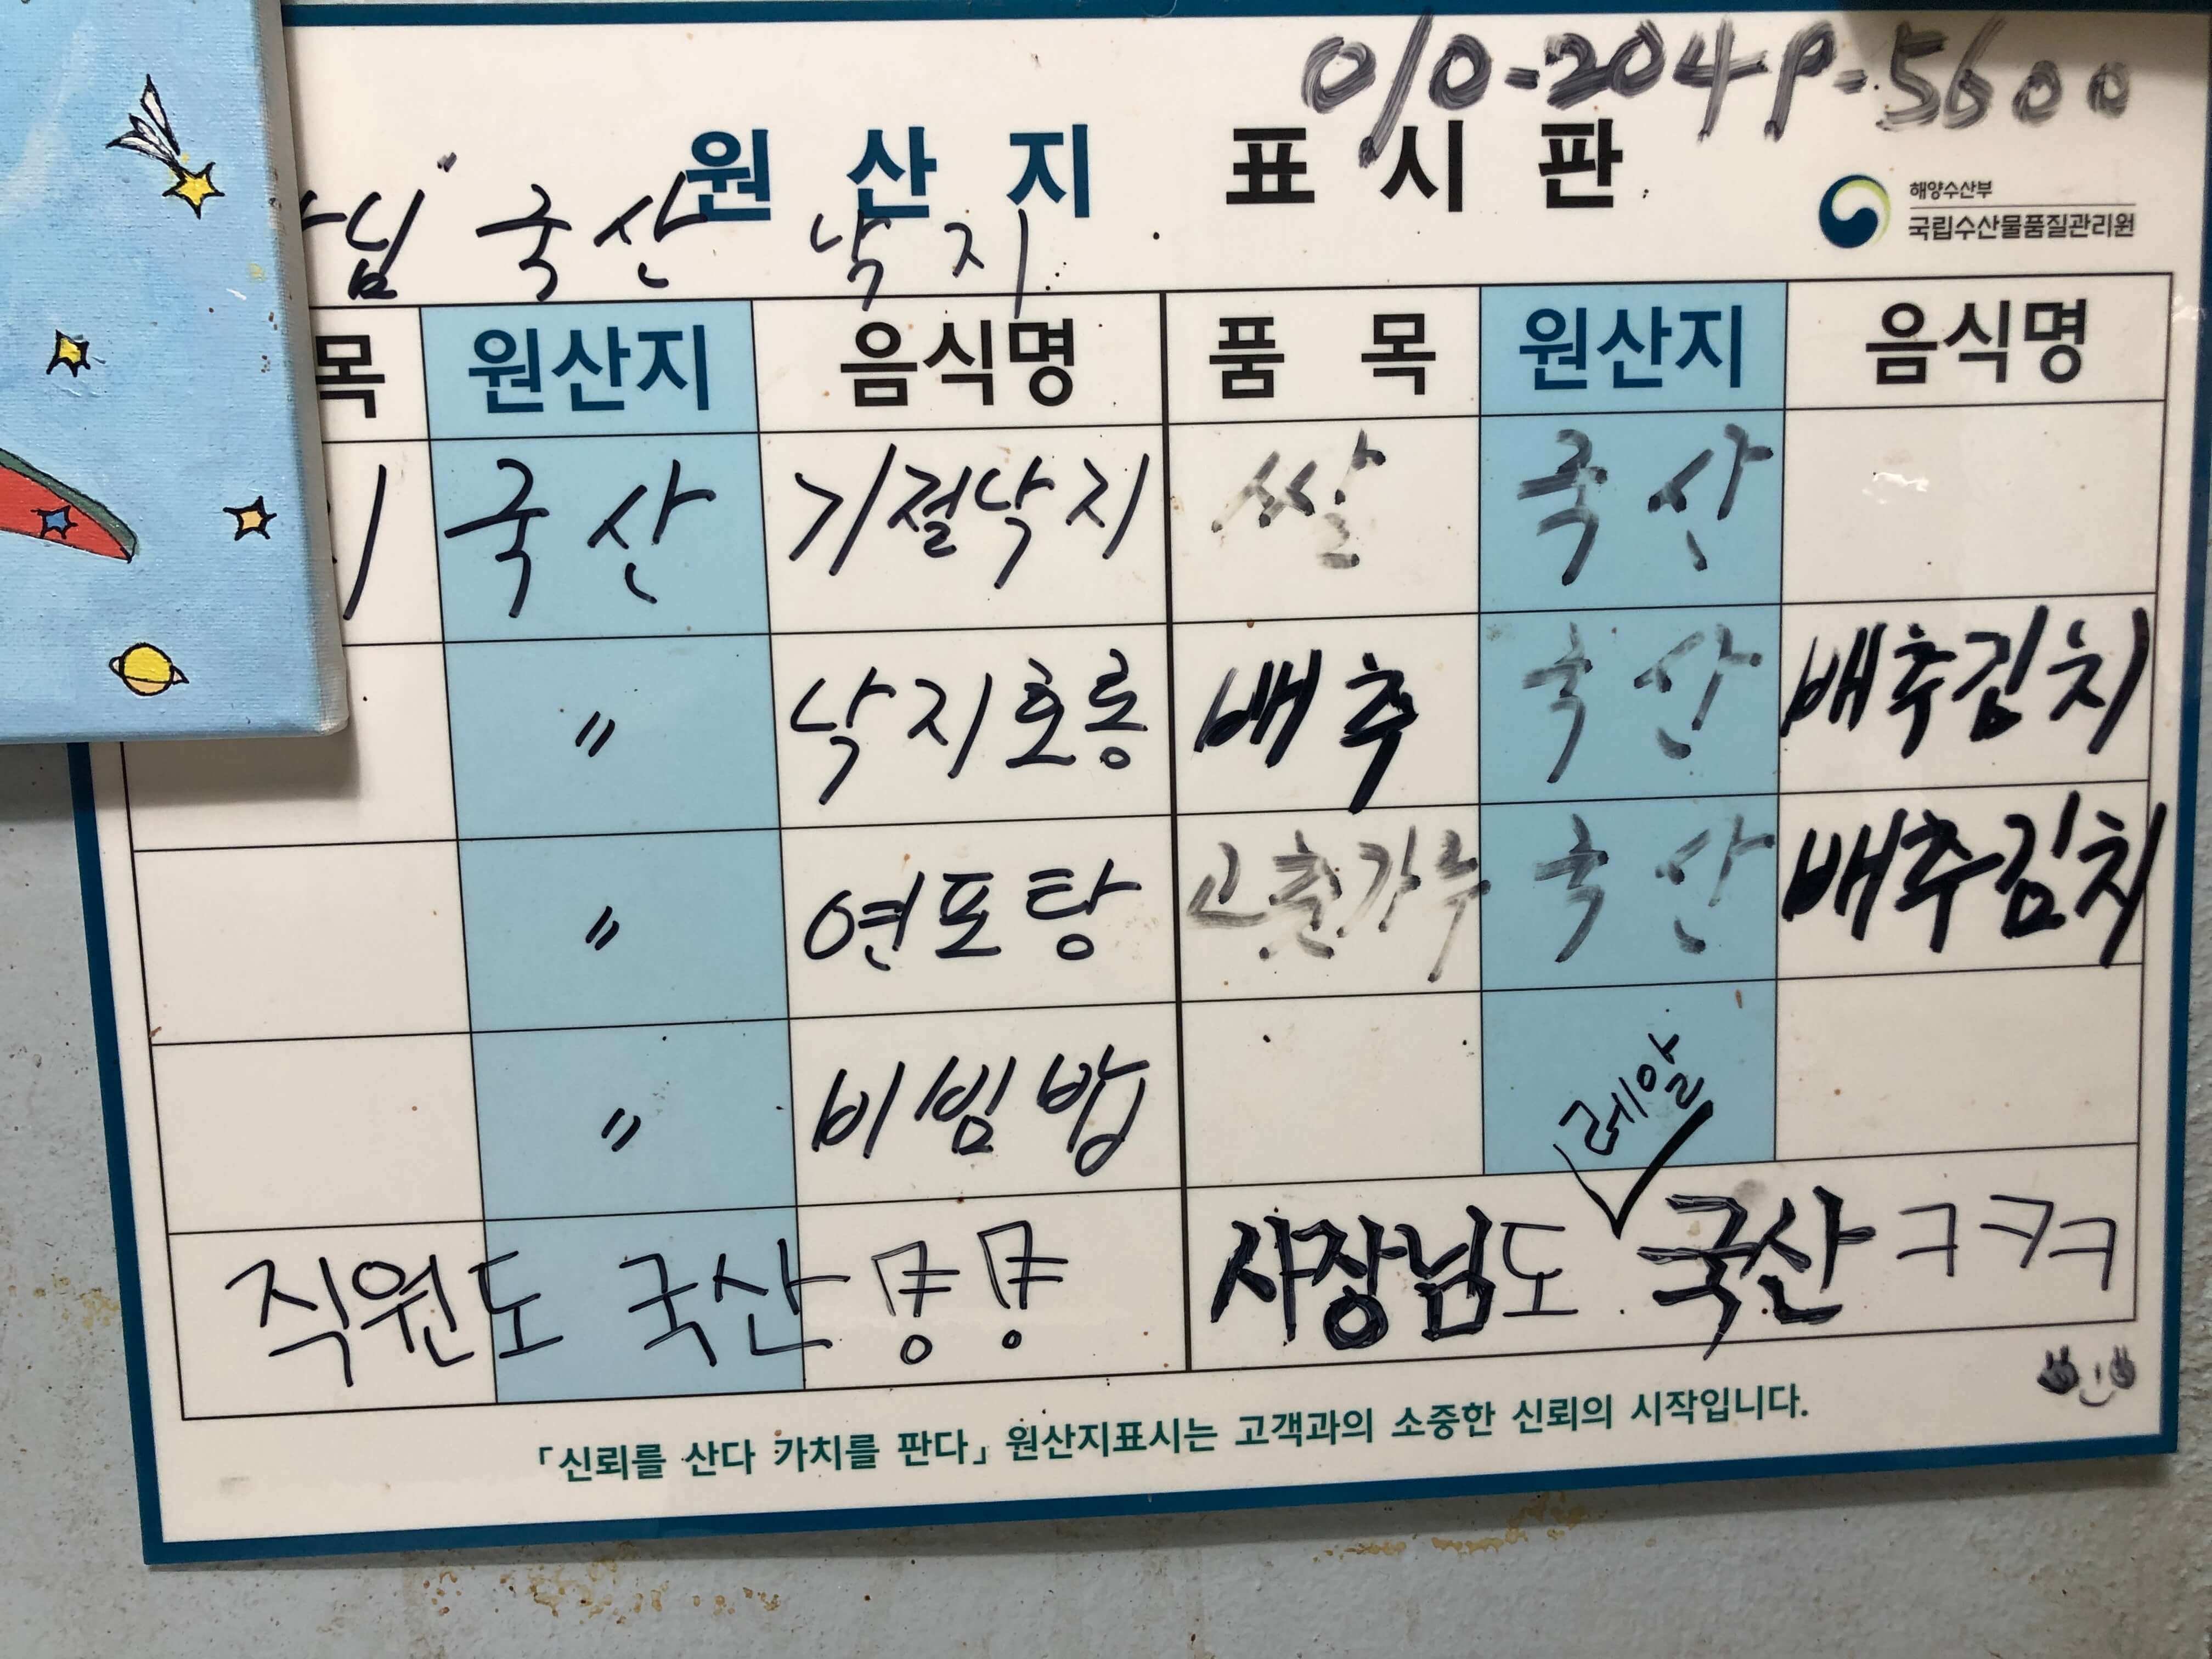 010-204P-5600
원 산 지 표 시 판
해양수산부
국립수산물품질관리원
님 국산 낙지
목 원산지 음식명 품 목 원산지 음식명
국산 기절낙지 쌀 국산
〃 낙지호롱 배추 국산 배추김치
〃 연포탕 고춘가루 국산 배추김치
〃 비빔밥
레알
직원도 국산 컁컁 사장님도 국산 ㅋㅋㅋ
「신뢰를 산다 가치를 판다」 원산지표시는 고객과의 소중한 신뢰의 시작입니다.